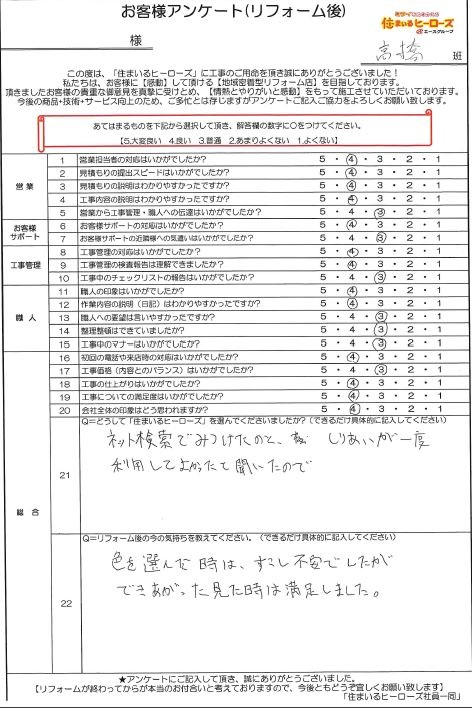 お客様アンケート(リフォーム後)
住まいるヒーローズ
エースグループ
様
高橋 班
この度は、「住まいるヒーローズ」に工事のご用命を頂き誠にありがとうございました！
私たちは、お客様に【感動】して頂ける【地域密着型リフォーム店】を目指しております。
頂きましたお客様の貴重な御意見を真摯に受けとめ、【情熱とやりがいと感動】をもって施工させていただいております。
今後の商品・技術・サービス向上のため、ご多忙とは存じますがアンケートご記入ご協力をよろしくお願い致します。
あてはまるものを下記から選択して頂き、解答欄の数字に○をつけてください。
【5.大変良い 4.良い 3.普通 2.あまりよくない 1.よくない】
営業
1 営業担当者の対応はいかがでしたか？ 5・4・3・2・1
2 見積もりの提出スピードはいかがでしたか？ 5・4・3・2・1
3 見積もりの説明はわかりやすかったですか？ 5・4・3・2・1
4 工事内容の説明はわかりやすかったですか？ 5・4・3・2・1
5 営業から工事管理・職人への伝達はいかがでしたか？ 5・4・3・2・1
お客様
サポート
6 お客様サポートの対応はいかがでしたか？ 5・4・3・2・1
7 お客様サポートの近隣様への気遣いはいかがでしたか？ 5・4・3・2・1
工事管理
8 工事管理の対応はいかがでしたか？ 5・4・3・2・1
9 工事管理の検査報告は理解できましたか？ 5・4・3・2・1
10 工事中のチェックリストの報告はいかがでしたか？ 5・4・3・2・1
職人
11 職人の印象はいかがでしたか？ 5・4・3・2・1
12 作業内容の説明（日記）はわかりやすかったですか？ 5・4・3・2・1
13 職人への要望は言いやすかったですか？ 5・4・3・2・1
14 整理整頓はできていましたか？ 5・4・3・2・1
15 工事中のマナーはいかがでしたか？ 5・4・3・2・1
総合
16 初回の電話や来店時の対応はいかがでしたか？ 5・4・3・2・1
17 工事価格（内容とのバランス）はいかがでしたか？ 5・4・3・2・1
18 工事の仕上がりはいかがでしたか？ 5・4・3・2・1
19 工事についての満足度はいかがでしたか？ 5・4・3・2・1
20 会社全体の印象はどう思われますか？ 5・4・3・2・1
21
Q=どうして「住まいるヒーローズ」を選んでくださいましたか？（できるだけ具体的に記入してください）
ネット検索でみつけたのと、 しりあいが一度
利用してよかったと聞いたので
22
Q=リフォーム後の今の気持ちを教えてください。（できるだけ具体的に記入してください）
色を選んだ時は、すこし不安でしたが
できあがった見た時は満足しました。
★アンケートにご記入して頂き、誠にありがとうございました。
【リフォームが終わってからが本当のお付合いと考えておりますので、今後ともどうぞ宜しくお願い致します】
「住まいるヒーローズ社員一同」